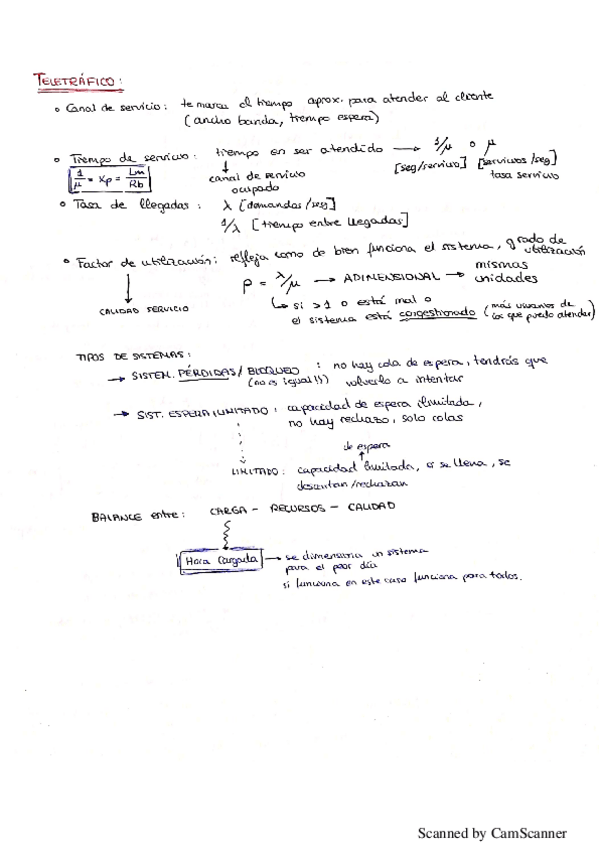 TELETRÁFICO:
• Canal de servicio: te marca el tiempo aprox. para atender al cliente
(ancho banda, tiempo espera)
• Tiempo de servicio: tiempo en ser atendido → 1/μ o μ
[seg/servicio] [servicios/seg]
tasa servicio
↓
canal de servicio
ocupado
1/μ = Xp = Lm/Rb
• Tasa de llegadas: λ [demandas/seg]
1/λ [tiempo entre llegadas]
• Factor de utilización: refleja como de bien funciona el sistema, grado de
utilización
ρ = λ/μ → ADIMENSIONAL → mismas
unidades
↓
CALIDAD SERVICIO
↳ si >1 o está mal o
el sistema está congestionado (más usuarios de
los que puedo atender)
TIPOS DE SISTEMAS:
→ SISTEM. PÉRDIDAS/BLOQUEO: no hay cola de espera, tendrás que
(no es igual!!) volverlo a intentar
→ SIST. ESPERA ILIMITADO: capacidad de espera ilimitada,
no hay rechazo, solo colas
de espera
↑
LIMITADO: capacidad limitada, si se llena, se
descartan/rechazan
BALANCE entre: CARGA - RECURSOS - CALIDAD
Hora Cargada → se dimensiona un sistema
para el peor día
si funciona en este caso funciona para todos.
Scanned by CamScanner